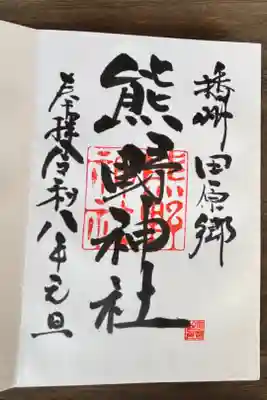 播州 田原郷
熊野神社
奉拝 令和八年 元旦
熊野
神社